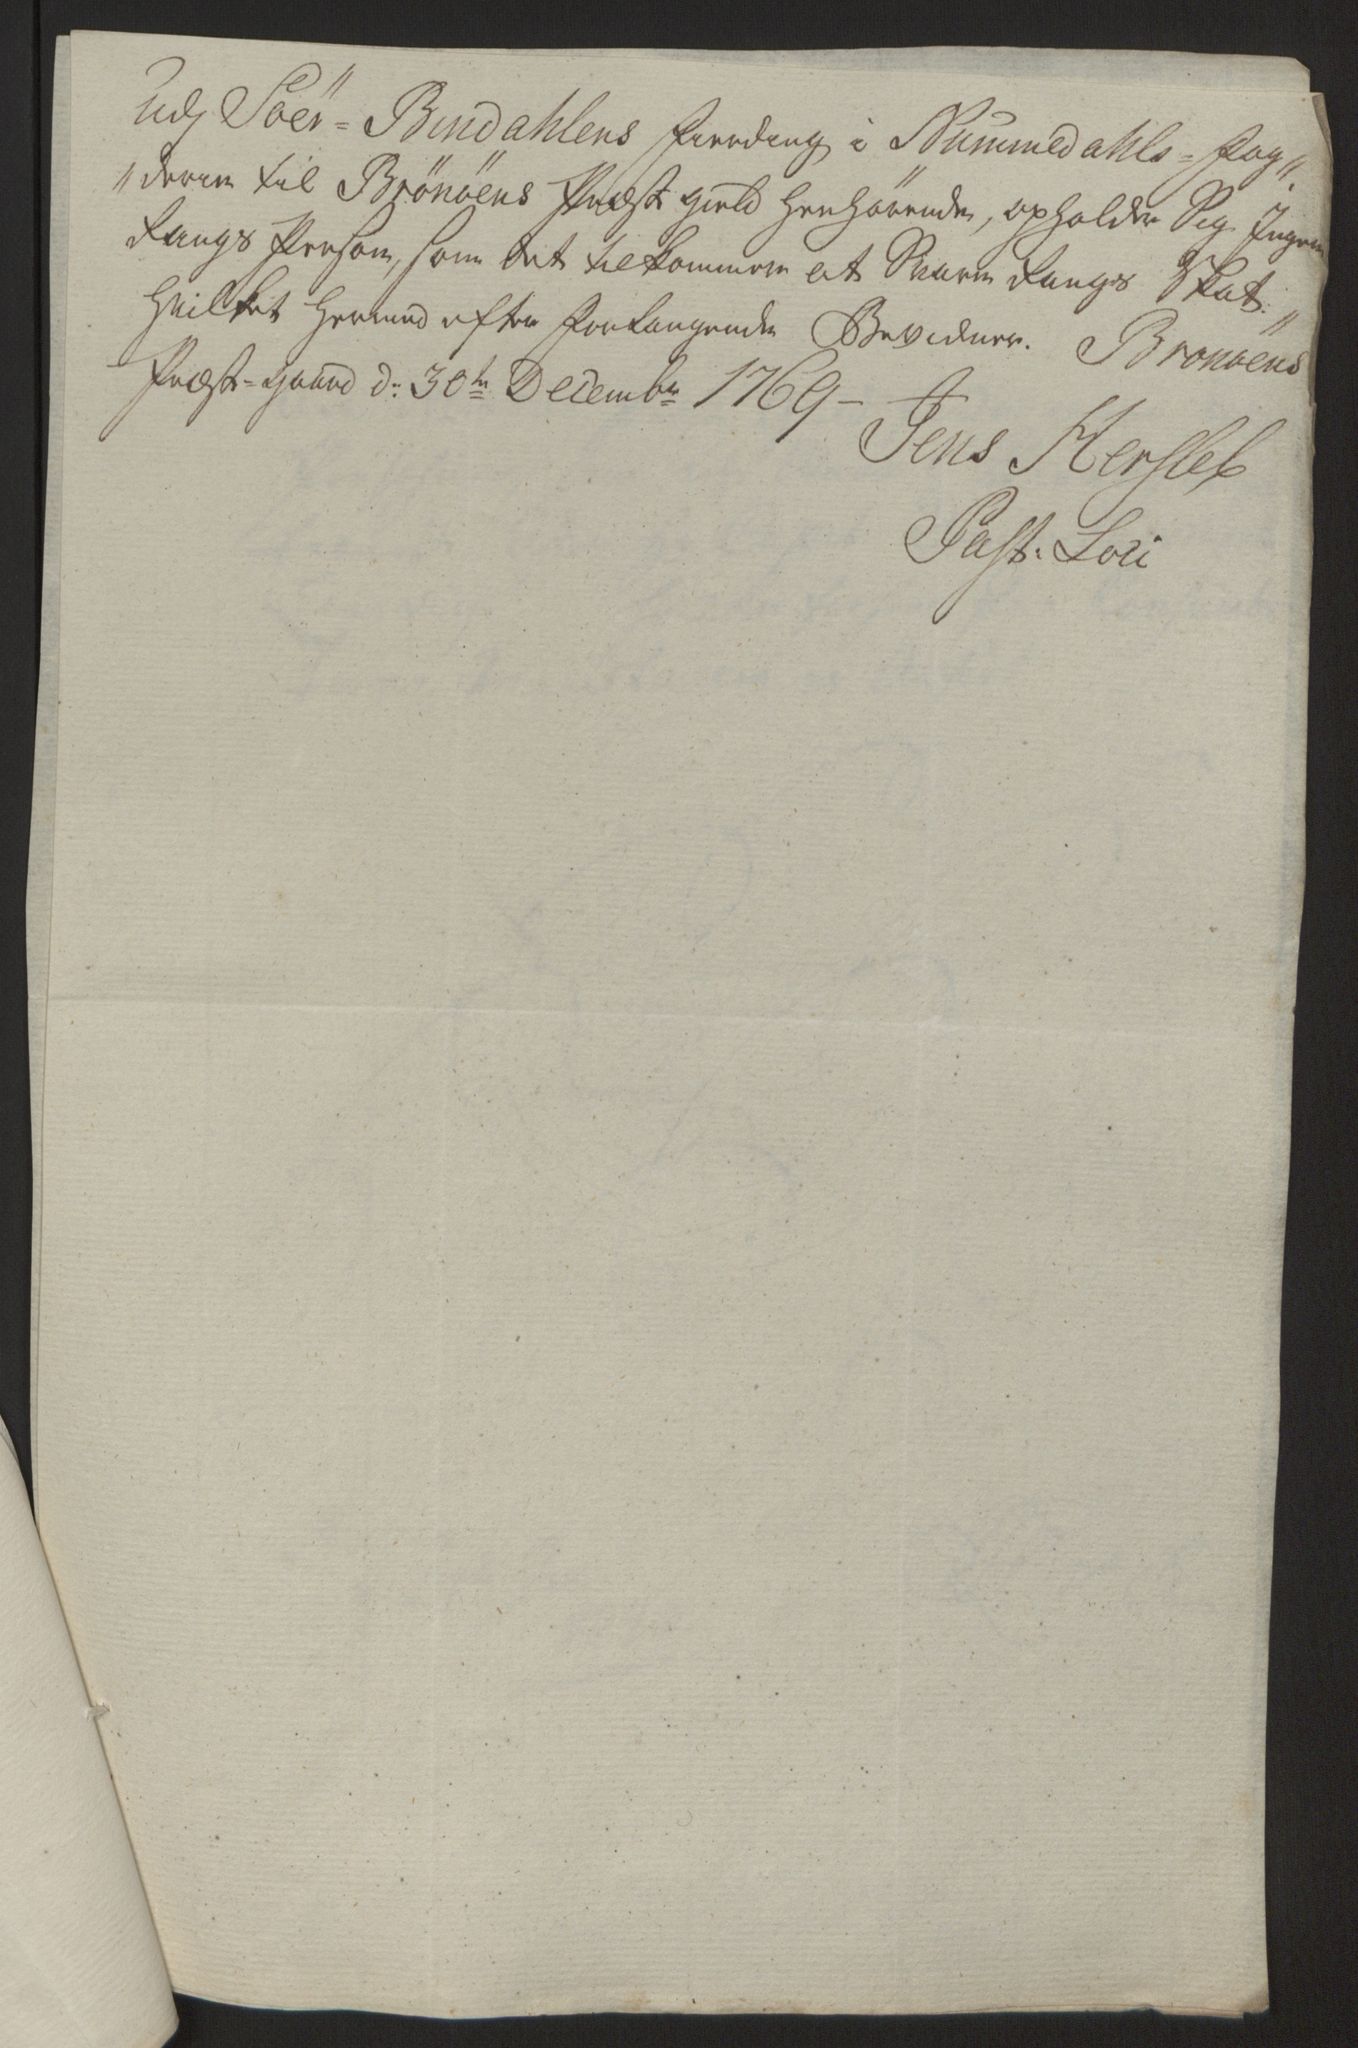 Udj Söer=Bindahlens fierding i Nummedahls=fog„
„derie til Brönöens Præste gield henhörende, opholder Sig Ingen
Rangs Person, som det tilkommer at Svare Rangs Skat.
hvilket hermed efter forlangende Bevidner. Brönöens
Præste=gaard d: 30te Decembr 1769 –
Jens Hersleb
Past. Loci